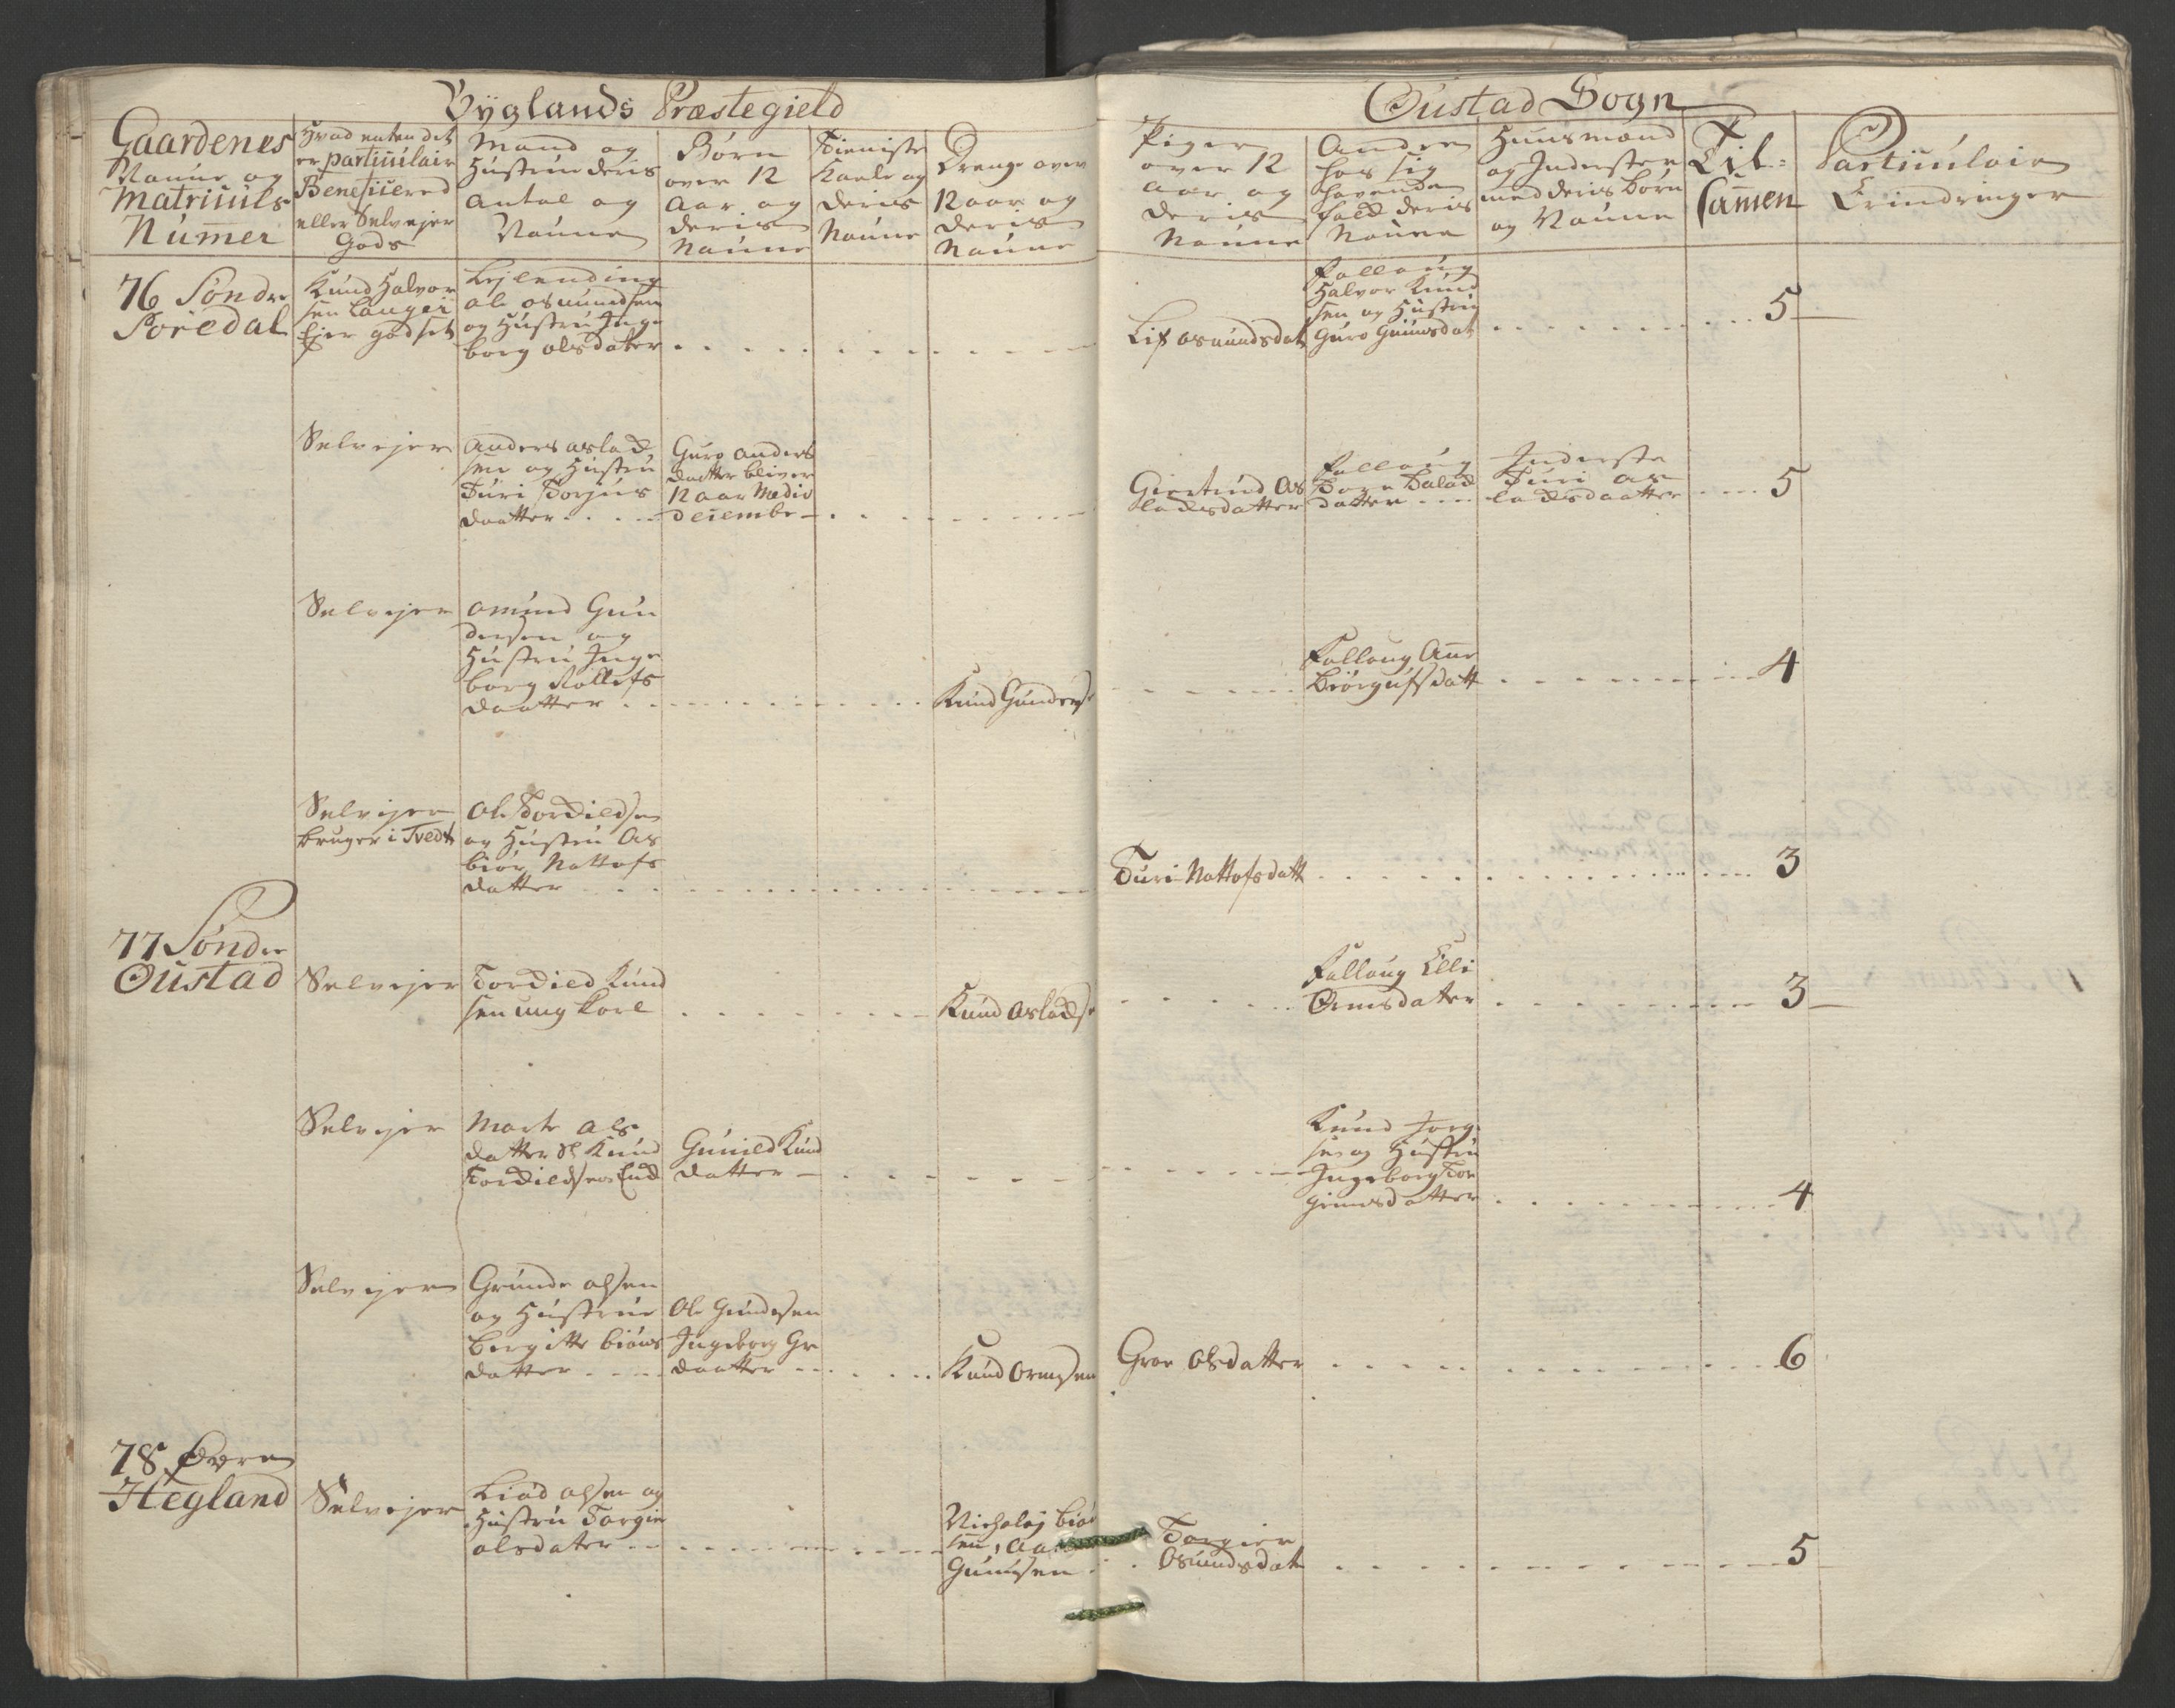 Byglands Præstegield
Oustad Sogn
Gaardenes
Naune og
Matriculs
Numer
Hvad enten det
er particulair
Beneficered
eller Selvejer
Gods
Mand og
Hustrue deris
Antal og
Naune
Børn
over 12
Aar og
deris
Naune
Tieniste
Karle og
deris
Naune
Drenge over
12 aar og
deris
Naune
Piger
over 12
Aar og
deris
Naune
Anden
hos sig
havende
fold deris
Naune
Huusmænd
og Inderster
med deris børn
og Naune
Til-
samen
Particulair
Erindringer
76 Søndre
Sordal
Knud Halvor
sen Langei
Ejer godset
Lejlending
ole osmundsen
og Hustru Inge
borg olsdater
Lif osmundsdat
Follaug
Halvor Knud
sen og Hustru
Guro Gunnsdat
5
Selvejer
Anders aslad
sen og Hustru
Turi Torjus
daatter
Guro Anders
daatter bliver
12 aar Medio
decembr
Giertrud As
ladsdatter
Follaug
Tore Salad
datter
Inderste
Turi As
ladsdaatter
5
Selvejer
Omund Gun
dersen og
Hustru Inge
borg Rollefs
daatter
Knud Gunders
Follaug Ane
Biørgufsdatt
4
Selvejer
bruger i Tvedt
Ole Tordieldsen
og Hustru As
biør Nottofs
datter
Turi Nottofsdatt
3
77 Søndre
Oustad
Selvejer
Tordield Knud
sen ung karl
Knud Asladse
Follaug Elli
Ormsdater
3
Selvejer
Marte Als
datter Sl Knud
Tordieldsens Enck
Gunild Knud
datter
Knud Jorg
sen og Hustru
Ingeborg Tor
grimsdatter
4
Selvejer
Grunde olsen
og Hustrue
bergitte biørns
datter
Ole Gundersen
Ingeborg Gr
daatter
Knud Ormsen
Groe olsdatter
6
78 Øvre
Hegland
Selvejer
Liød olsen og
Hustru Torgier
olsdater
Nicholaj biør
sen,
Gunnsen
Torgier
Osmundsdat
5